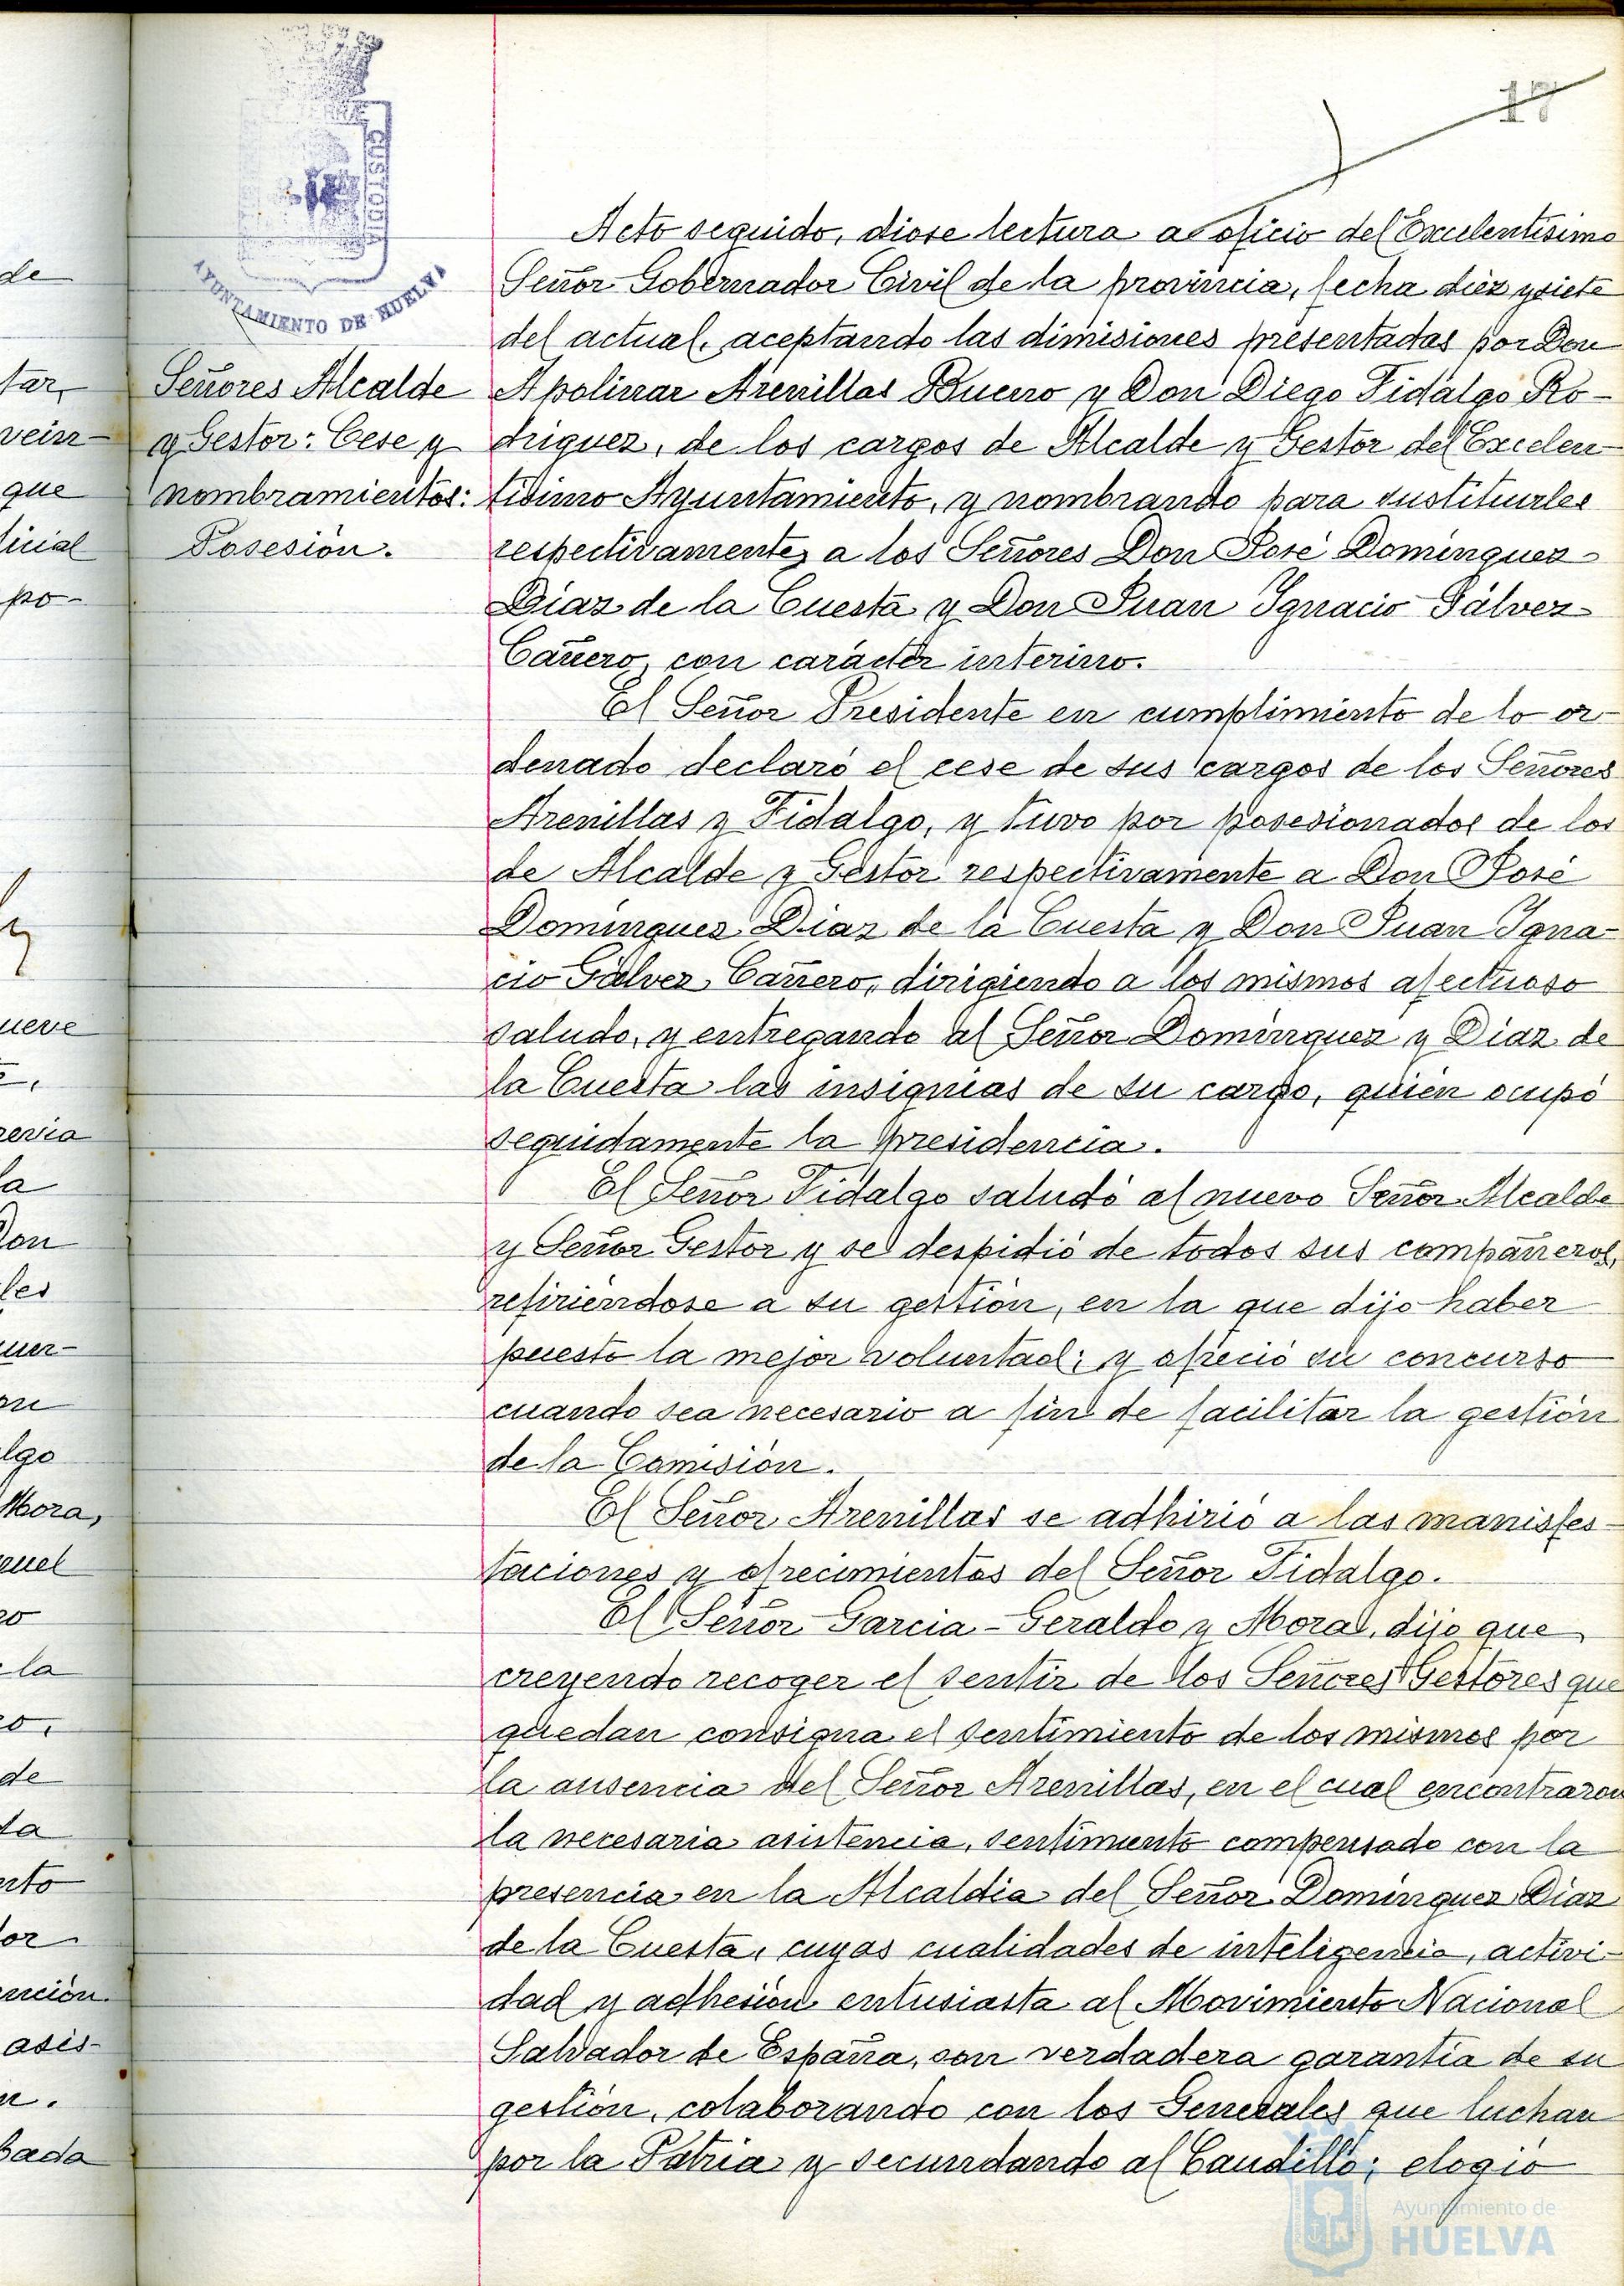 17
CUSTODIA
AYUNTAMIENTO DE HUELVA
Señores Alcalde
y Gestor: Cese y
nombramientos:
Posesión.
Acto seguido, diose lectura a oficio del Excelentísimo
Señor Gobernador Civil de la provincia, fecha diez y siete
del actual, aceptando las dimisiones presentadas por Don
Apolinar Arenillas Bueno y Don Diego Fidalgo Ro-
driguez, de los cargos de Alcalde y Gestor del Excelen-
tisimo Ayuntamiento, y nombrando para sustituirles
respectivamente, a los Señores Don José Dominguez
Diaz de la Cuesta y Don Juan Ignacio Gálvez
Cañero, con carácter interino.
El Señor Presidente en cumplimiento de lo or-
denado declaró el cese de sus cargos de los Señores
Arenillas y Fidalgo, y tuvo por posesionados de los
de Alcalde y Gestor respectivamente a Don José
Dominguez Diaz de la Cuesta y Don Juan Igna-
cio Gálvez Cañero, dirigiendo a los mismos afectuoso
saludo, y entregando al Señor Dominguez y Diaz de
la Cuesta las insignias de su cargo, quien ocupó
seguidamente la presidencia.
El Señor Fidalgo saludó al nuevo Señor Alcalde
y Señor Gestor y se despidió de todos sus compañeros,
refiriéndose a su gestión, en la que dijo haber
puesto la mejor voluntad; y ofreció su concurso
cuando sea necesario a fin de facilitar la gestión
de la Comisión.
El Señor Arenillas se adhirió a las manisfes-
taciones y ofrecimientos del Señor Fidalgo.
El Señor Garcia-Geraldo y Mora, dijo que
creyendo recoger el sentir de los Señores Gestores que
quedan consigna el sentimiento de los mismos por
la ausencia del Señor Arenillas, en el cual encontraron
la necesaria asistencia, sentimiento compensado con la
presencia en la Alcaldia del Señor Dominguez Diaz
de la Cuesta, cuyas cualidades de inteligencia, activi-
dad y adhesión entusiasta al Movimiento Nacional
Salvador de España, son verdadera garantía de su
gestión, colaborando con los Generales que luchan
por la Patria y secundando al Caudillo; elogió
Ayuntamiento de
HUELVA